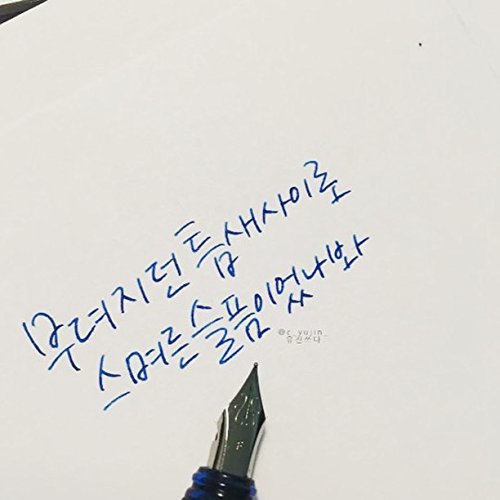 무뎌지던 틈새사이로
스며른 슬픔이었나봐
@c_yujin_
유진쓰다